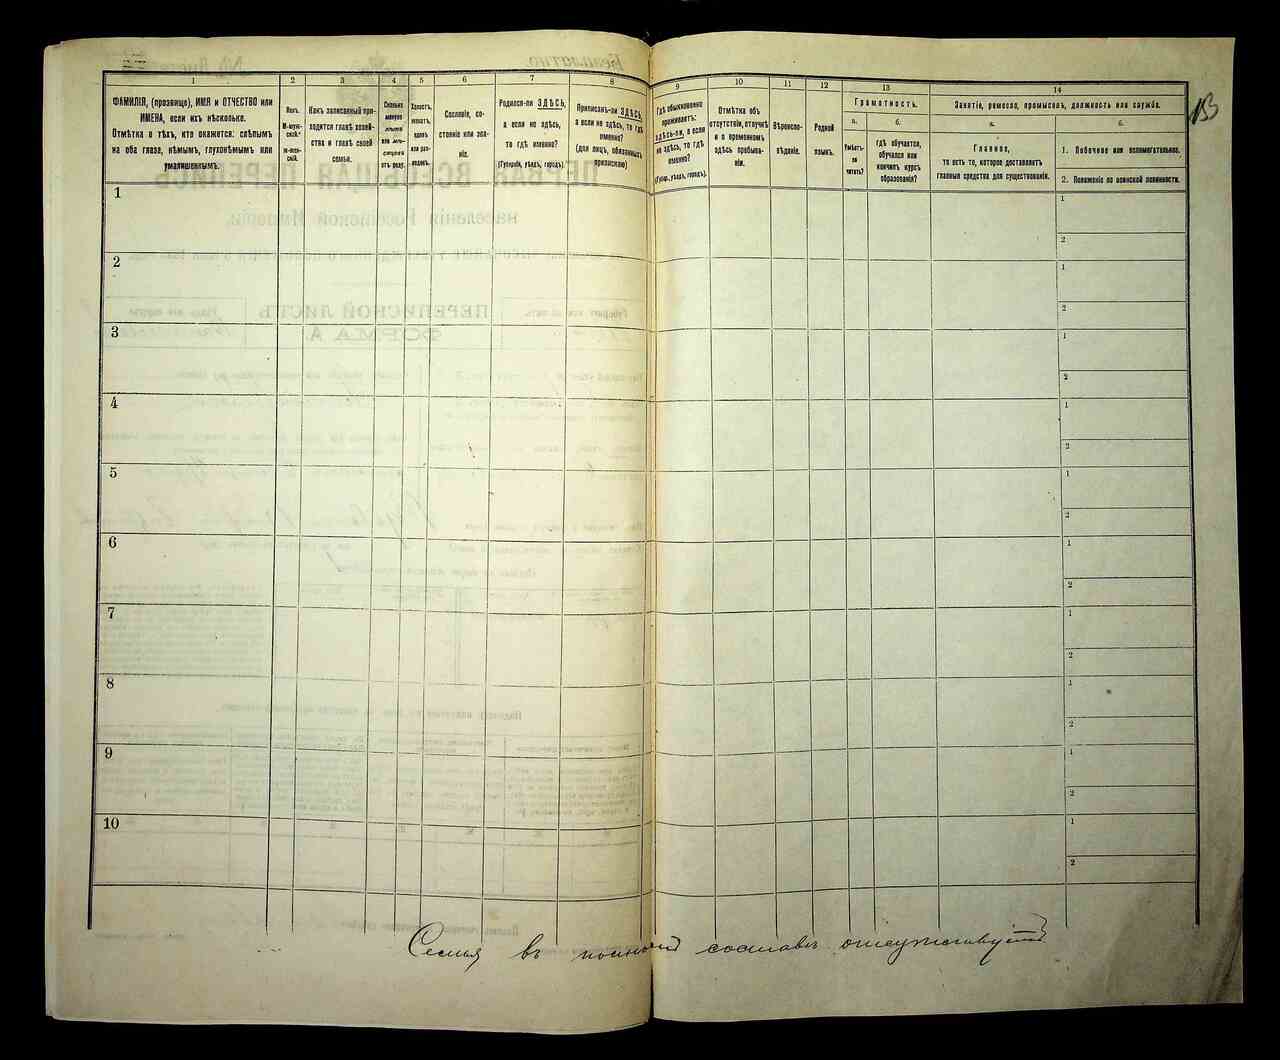 153
1 2 3 4 5 6 7 8 9 10 11 12 13 14
ФАМИЛІЯ, (прозвище), ИМЯ и ОТЧЕСТВО или
ИМЕНА, если ихъ нѣсколько.
Отмѣтка о тѣхъ, кто окажется: слѣпымъ
на оба глаза, нѣмымъ, глухонѣмымъ или
умалишеннымъ.
Полъ.
М-муж-
ской.
ж-жен-
скій.
Какъ записанный при-
ходится главѣ хозяй-
ства и главѣ своей
семьи.
Сколько
минуло
лѣтъ
или мѣ-
сяцевъ
отъ роду.
Холостъ,
женатъ,
вдовъ
или раз-
веденъ.
Сословіе, со-
стояніе или зва-
ніе.
Родился-ли ЗДѢСЬ,
а если не здѣсь,
то гдѣ именно?
(Губернія, уѣздъ, городъ).
Приписанъ-ли ЗДѢСЬ,
а если не здѣсь, то гдѣ
именно?
(для лицъ, обязанныхъ
припискою)
Гдѣ обыкновенно
проживаетъ:
здѣсь-ли, а если
не здѣсь, то гдѣ
именно?
(Губер., уѣздъ, городъ).
Отмѣтка объ
отсутствіи, отлучкѣ
и о временномъ
здѣсь пребыва-
ніи.
Вѣроиспо-
вѣданіе.
Родной
языкъ.
Грамотность.
а.
Умѣетъ-
ли
читать?
б.
гдѣ обучается,
обучался или
кончилъ курсъ
образованія?
Занятіе, ремесло, промыселъ, должность или служба.
а.
Главное,
то есть то, которое доставляетъ
главныя средства для существованія.
б.
1. Побочное или вспомогательное.
2. Положеніе по воинской повинности.
1 1
2
2 1
2
3 1
2
4 1
2
5 1
2
6 1
2
7 1
2
8 1
2
9 1
2
10 1
2
Семья въ полномъ составѣ отсутствуетъ